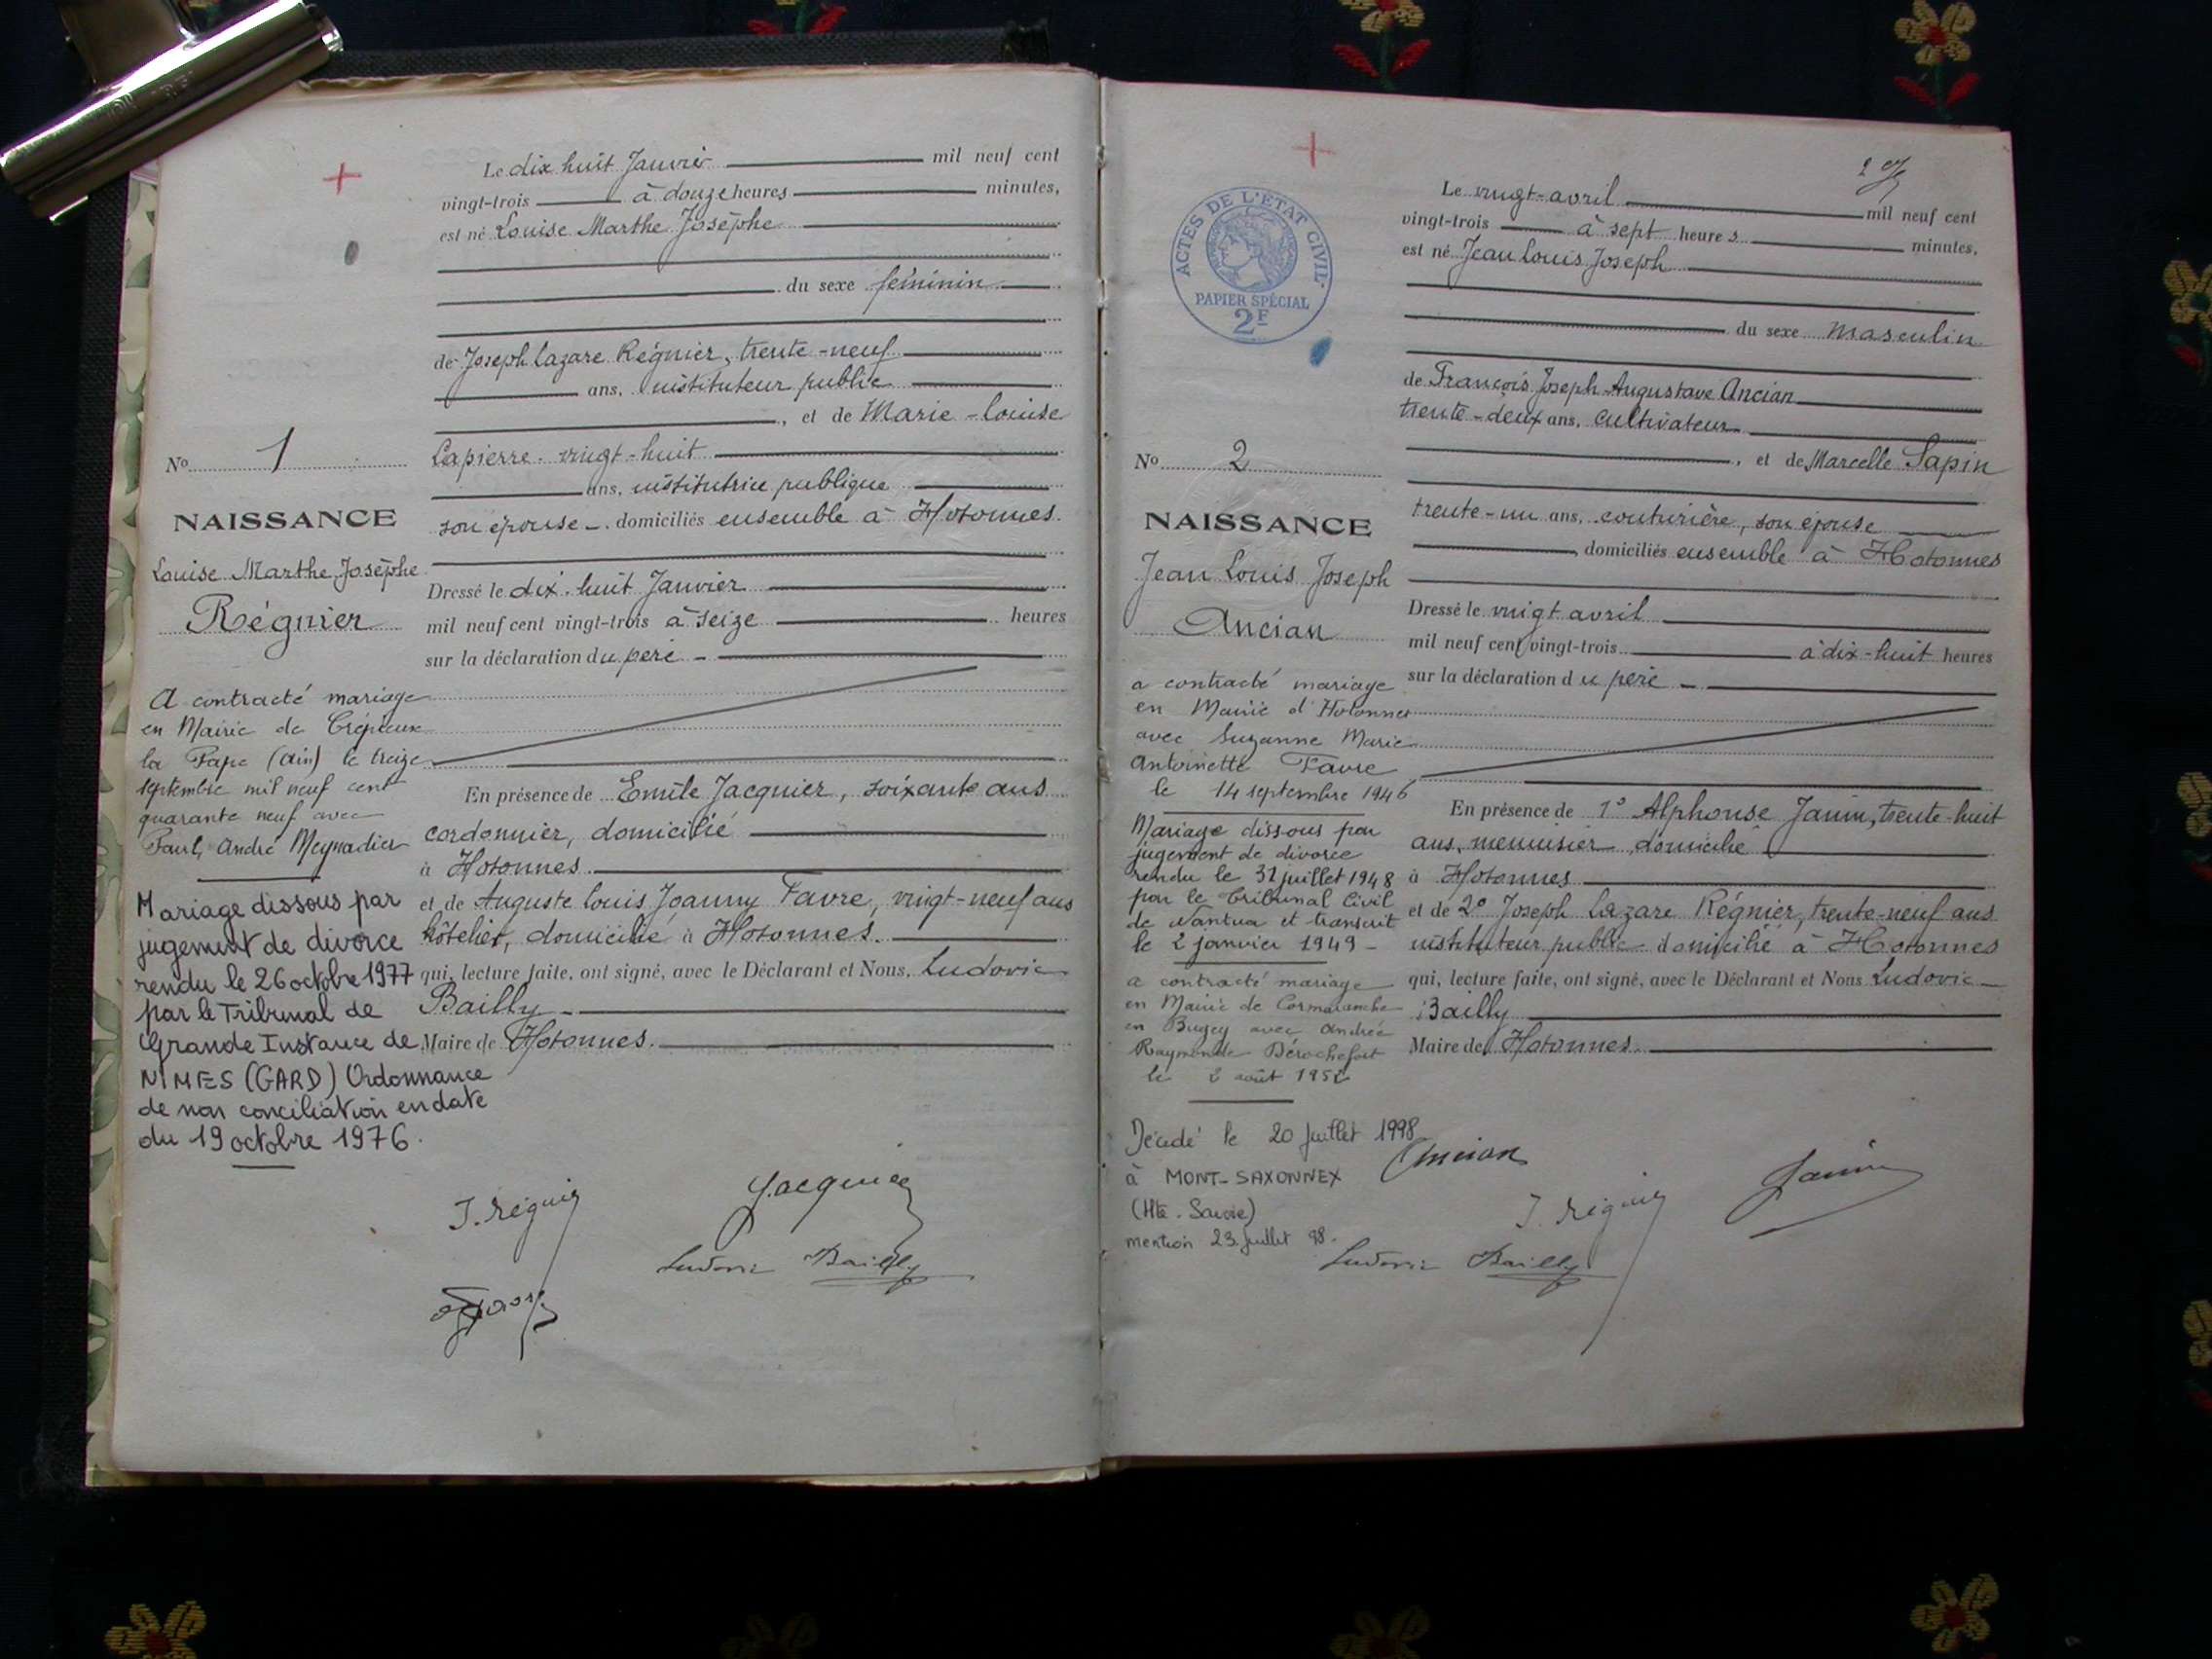 Le dix huit Janvier mil neuf cent
vingt-trois à douze heures minutes,
est né Louise Marthe Josèphe
du sexe féminin
de Joseph Lazare Régnier, trente-neuf
ans, instituteur public
, et de Marie-Louise
Lapierre. vingt-huit
ans, institutrice publique
son épouse -. domiciliés ensemble à Hotonnes.
Dressé le dix-huit Janvier
mil neuf cent vingt-trois à seize heures
sur la déclaration du père -
En présence de Emile Jacquier, soixante ans
cordonnier, domicilié
à Hotonnes
et de Auguste Louis Joanny Favre, vingt-neuf ans
hôtelier, domicilié à Hotonnes.
qui, lecture faite, ont signé, avec le Déclarant et Nous, Ludovic
Bailly -
Maire de Hotonnes.
No 1
NAISSANCE
Louise Marthe Josèphe
Régnier
A contracté mariage
en Mairie de Crépieux
la Pape (Ain) le treize
septembre mil neuf cent
quarante neuf avec
Paul, André Meynadier
Mariage dissous par
jugement de divorce
rendu le 26 octobre 1977
par le Tribunal de
Grande Instance de
NIMES (GARD) Ordonnance
de non conciliation en date
du 19 octobre 1976.
J. Régnier
Jacquier
Ludovic Bailly
ACTES DE L'ETAT CIVIL
PAPIER SPÉCIAL
2F
Le vingt-avril mil neuf cent
vingt-trois à sept heures minutes,
est né Jean Louis Joseph
du sexe masculin
de François Joseph Augustave Ancian
trente-deux ans, cultivateur
, et de Marcelle Sapin
trente-un ans, couturière, son épouse
, domiciliés ensemble à Hotonnes
Dressé le vingt avril
mil neuf cent vingt-trois à dix-huit heures
sur la déclaration du père -
En présence de 1° Alphonse Janin, trente-huit
ans, menuisier domicilié
à Hotonnes
et de 2° Joseph Lazare Régnier, trente-neuf ans
instituteur public domicilié à Hotonnes
qui, lecture faite, ont signé, avec le Déclarant et Nous Ludovic
Bailly
Maire de Hotonnes.
No 2
NAISSANCE
Jean Louis Joseph
Ancian
a contracté mariage
en Mairie d'Hotonnes
avec Suzanne Marie
Antoinette Favre
le 14 septembre 1946
Mariage dissous par
jugement de divorce
rendu le 31 juillet 1948
par le Tribunal Civil
de Nantua et transcrit
le 2 janvier 1949 -
a contracté mariage
en Mairie de Cormaranche
en Bugey avec Andrée
Raymonde Dérochefort
le 2 août 1952
Décédé le 20 juillet 1998
à MONT-SAXONNEX
(Hte. Savoie)
mention 23 juillet 98.
Ancian
J. Régnier
Janin
Ludovic Bailly